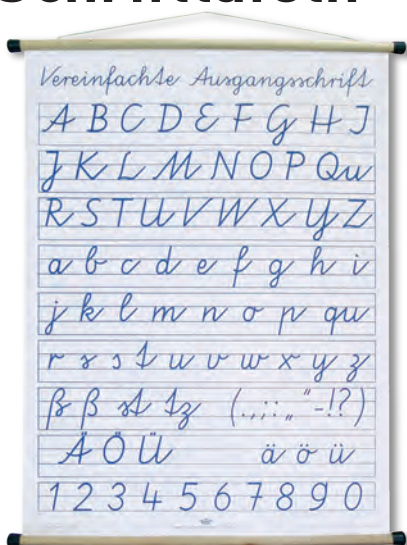 Schrifttafeln
Vereinfachte Ausgangsschrift
A B C D E F G H I
J K L M N O P Qu
R S T U V W X Y Z
a b c d e f g h i
j k l m n o p qu
r s s t u v w x y z
ß ß st tz (.,;:„“-!?)
Ä Ö Ü ä ö ü
1 2 3 4 5 6 7 8 9 0